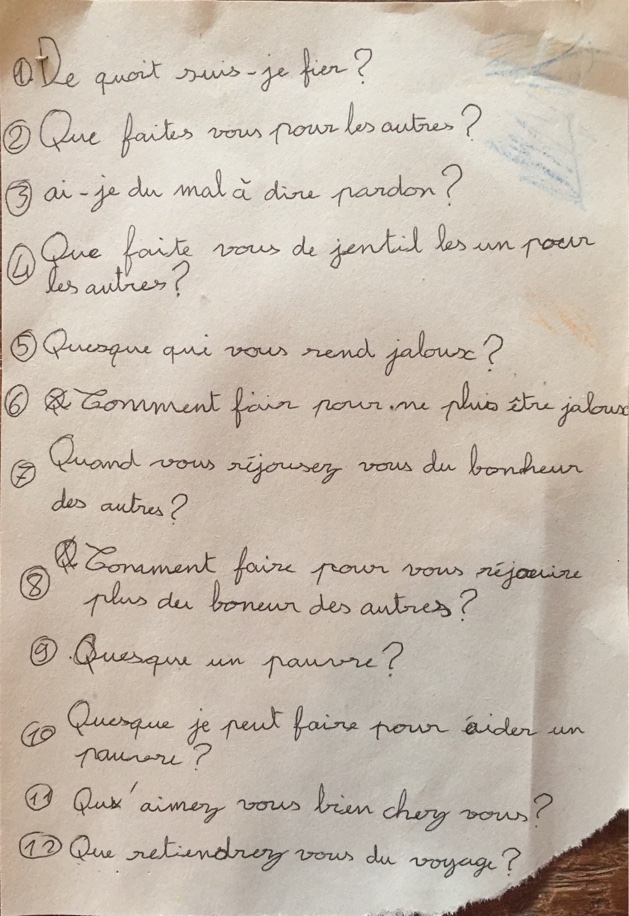 ① De quoit suis-je fier ?
② Que faites vous pour les autres ?
③ ai-je du mal à dire pardon ?
④ Que faite vous de jentil les un pour
les autres ?
⑤ Quesque qui vous rend jaloux ?
⑥ Comment fair pour ne plus être jaloux
⑦ Quand vous réjousez vous du bonheur
des autres ?
⑧ Comment faire pour vous réjouire
plus du boneur des autres ?
⑨ Quesque un pauvre ?
⑩ Quesque je peut faire pour aider un
pauvre ?
⑪ Qu'aimez vous bien chez vous ?
⑫ Que retiendrez vous du voyage ?